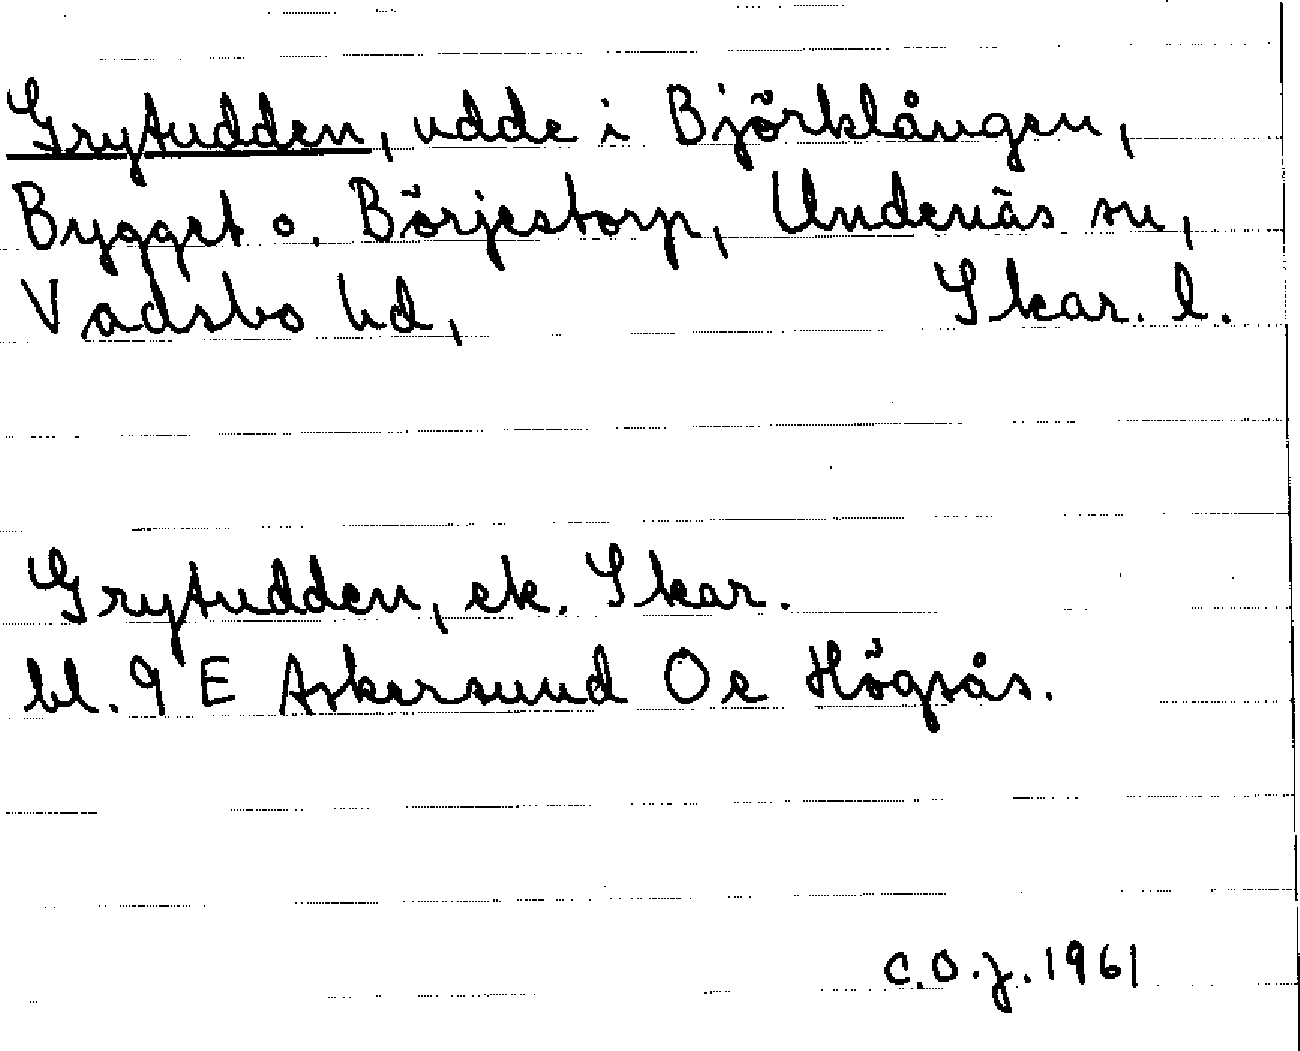 Grytudden, udde i Björklången,
Bygget o. Börjestorp, Undenäs sn,
Vadsbo hd, Skar. l.
Grytudden, ek. Skar.
bl. 9 E Askersund Oe Högsås.
C.O.J. 1961